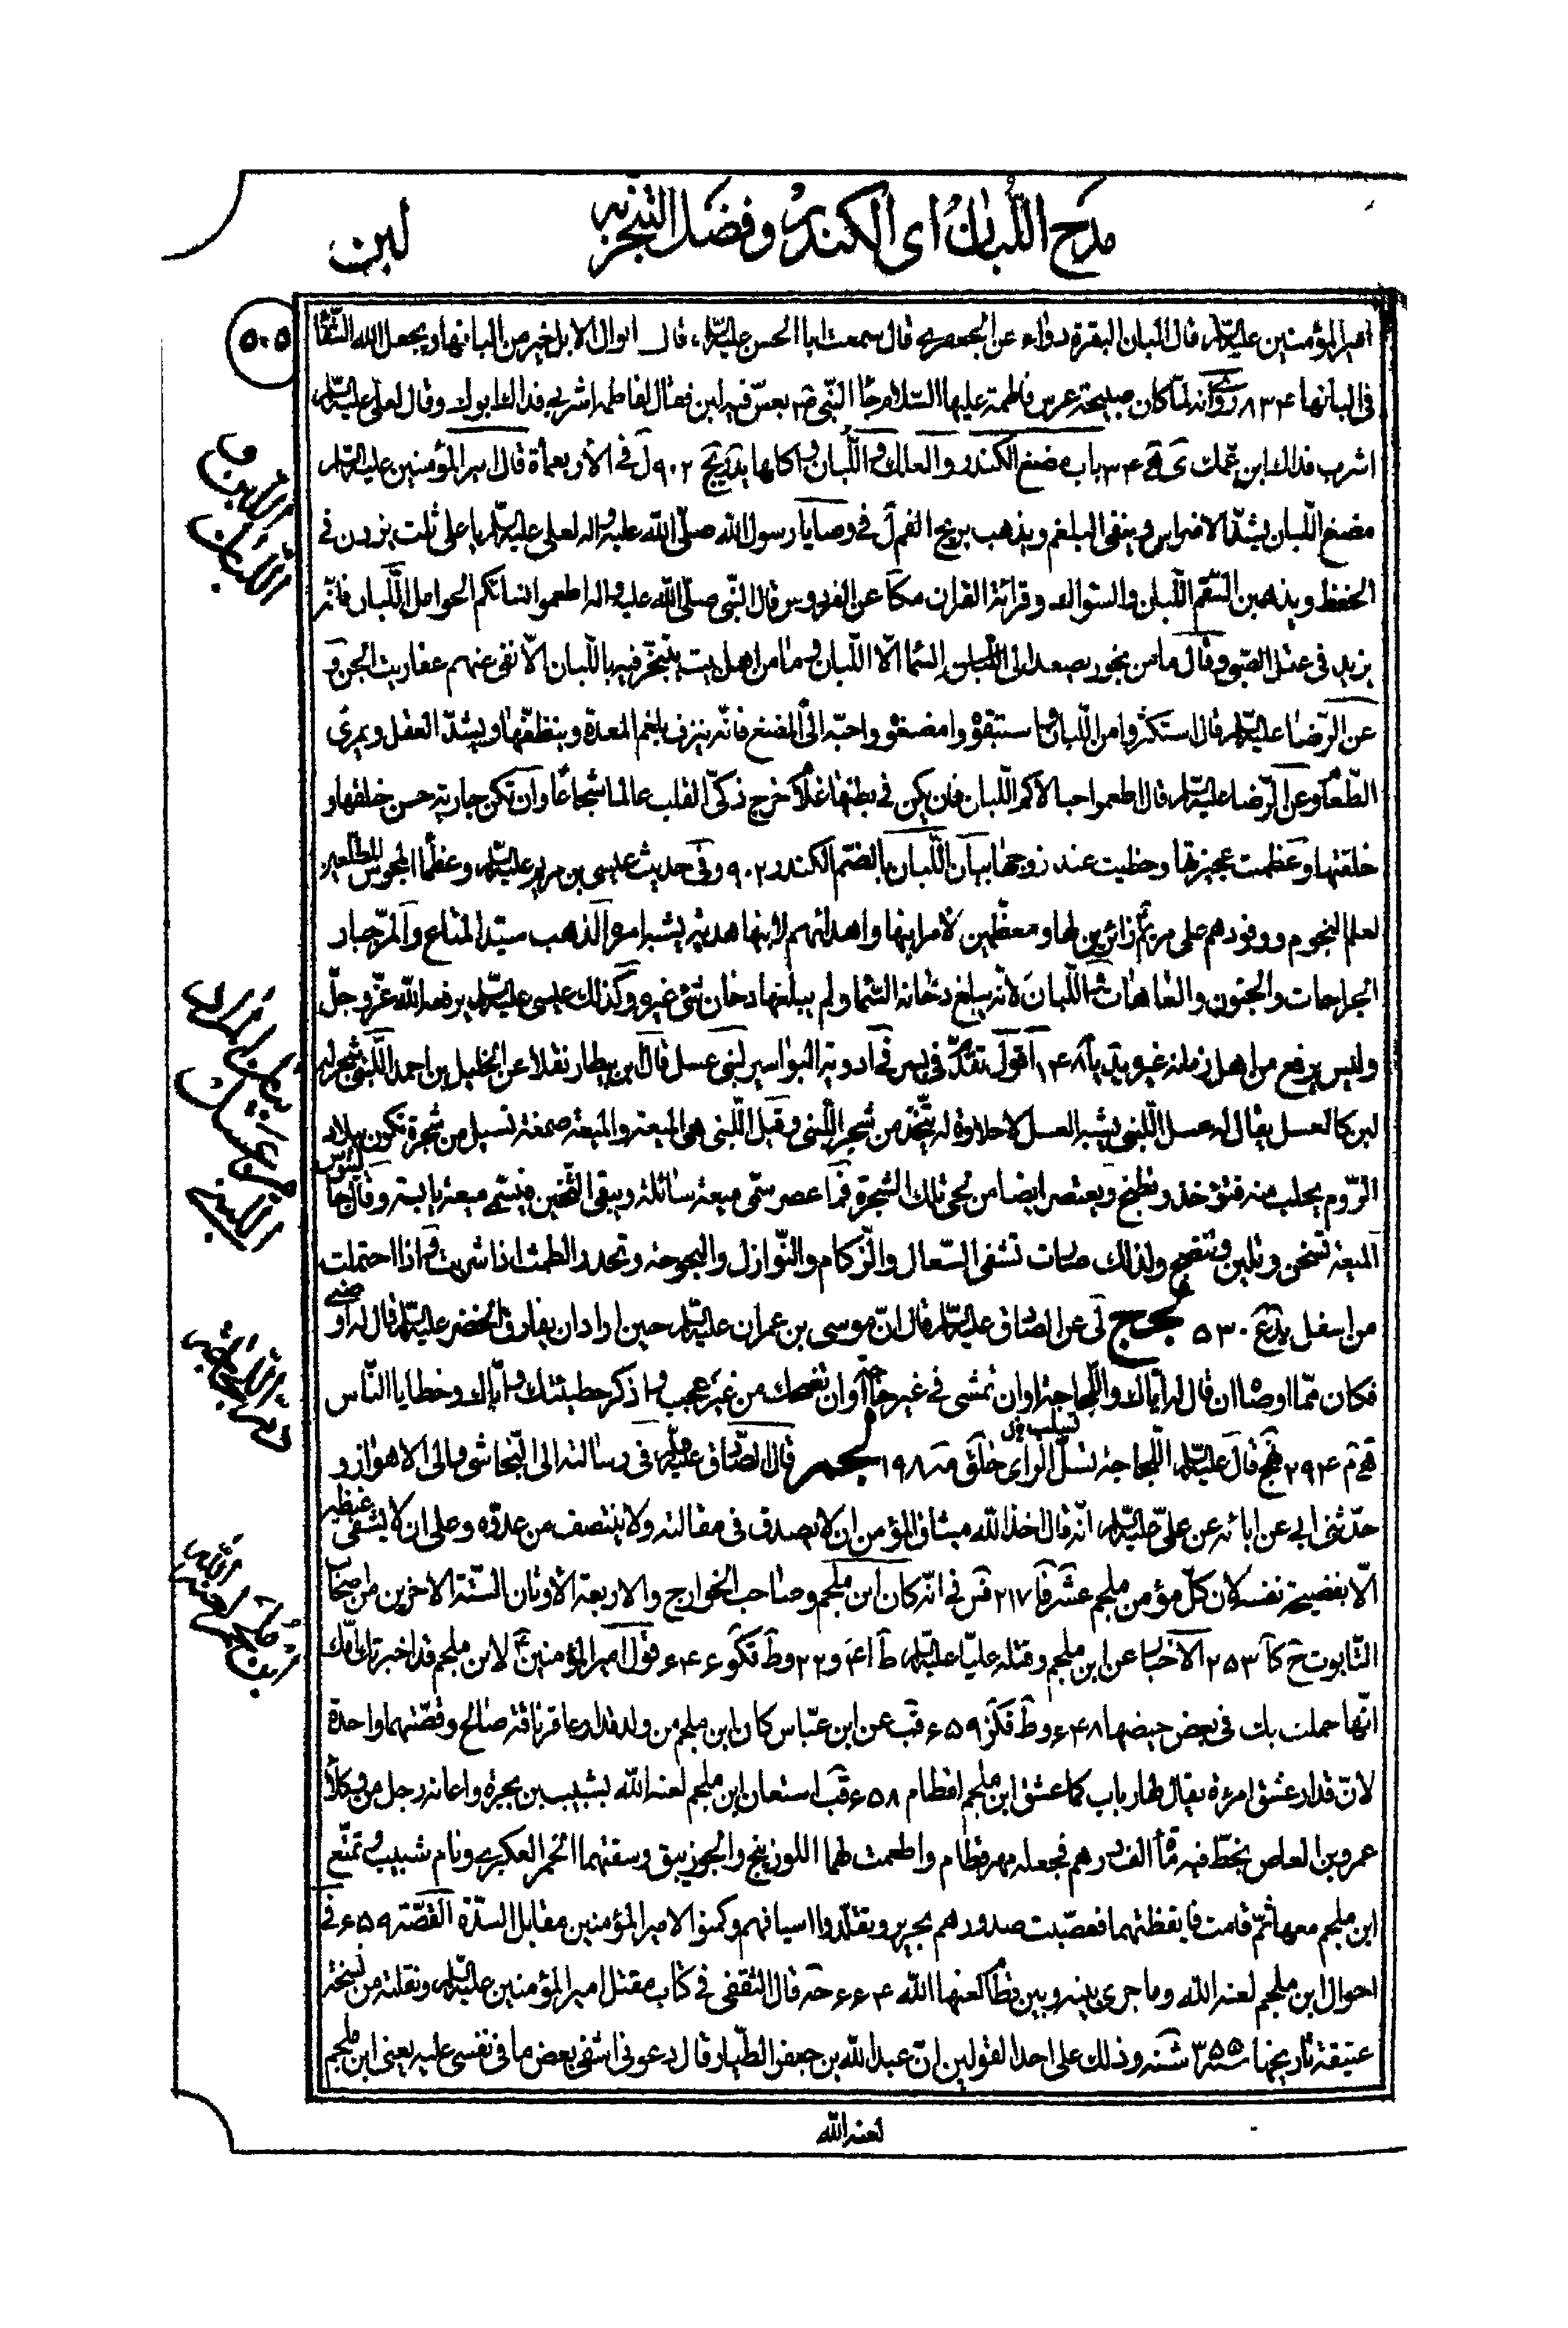 مدح اللُّبان اى الكندر و فضل التبخّر به
لبن
٥٠٥
امير المؤمنين عليه السّلام قال البان البقرة دواء عن الجعفرى قال سمعت ابا الحسن عليه السّلام، قال ابوال الابل خير من البانها ويجعل الله الشّفا
فى البانها ٨٣٤ روى انّه لمّا كان صبيحة عرس فاطمة عليها السّلام جاء النّبى ص بعسّ فيه لبن فقال لفاطمة اشربى فداك ابوك وقال لعلى عليه السّلام
اشرب فداك ابن عمّك ى ھ ٣٤ باب مضغ الكندر والعلك واللّبان واكلها يد ريج ٩٠٢ ل فى الأربعمأة قال امير المؤمنين عليه السّلام
مضغ اللّبان يشدّ الاضراس وينفى البلغم ويذهب بريح الفم ل فى وصايا رسول الله صلّى الله عليه واله لعلى عليه السّلام يا على ثلث يزدن فى
الحفظ ويذهبن السّقم اللّبان والسّواك وقرائة القران مكا عن الفردوس قال النّبى صلّى الله عليه واله اطعموا نسائكم الحوامل اللّبان فانّه
يزيد فى عقل الصّبى وقال ما من بخور يصعد الى السّماء الّا اللّبان وما من اهل بيت يتبخّر فيه باللّبان الّا نفى عنهم عفاريت الجن و
عن الرّضا عليه السّلام قال استكثروا من اللّبان واستبقوه وامضغوه واحبّه الىّ المضغ فانّه ينزف بلغم المعدة وينظّفها ويشدّ العقل ويمرئ
الطّعام وعن الرّضا عليه السّلام قال اطعموا حبالاكم اللّبان فان يكن فى بطنها غلام خرج ذكىّ القلب عالما شجاعا وان تكن جارية حسن خلقها و
خلقتها وعظمت عجيزتها وحظيت عند زوجها بيان اللّبان بالضّم الكندر ٩٠٢ وفى حديث عيسى بن مريم عليه السّلام، وعظما المجوس المطّلعين
لعلم النجوم ووفودهم على مريم زائرين لها ومعظّمين لامر ابنها واهدائهم لابنها هديّة يشبه امره الذّهب سيّد المتاع والمرّ جبار
الجراحات والجنون والعاهات واللّبان لانّه يبلغ دخانه السّماء ولم يبلغها دخان شئ غيره وكذلك عيسى عليه السّلام يرفعه الله عزّ وجلّ
وليس يرفع من اهل زمانه غيره يد يا ١٤٨ اقول تقدّم فى بسر فى ادوية البواسير لبنى عسل قال ابن بيطار نقلا عن الخليل بن احمد اللّبنى شجر له
لبن كالعسل يقال له عسل اللّبنى يشبه العسل لا حلاوة له يتّخذ من شجر اللّبنى وقيل اللّبنى هى الميعة والميعة صمغة تسيل من شجرة تكون ببلاد
الرّوم يحلب منه فتؤخذ وتطبخ ويعتصر ايضا من لحى تلك الشجرة فما عصر سمّى ميعة سائلة ويبقى الثّخين فيسمّى ميعة يابسة وقال جالينوس
الميعة تسخن وتلين وتنضج ولذلك صارت تشفى السّعال والزّكام والنّوازل والبحوحة وتحدر الطمث اذا شربت واذا احتملت
من اسفل يد ع ٥٣٠ لجج لى عن الصّادق عليه السّلام قال انّ موسى بن عمران عليه السّلام حين اراد ان يفارق الخضر عليه السّلام قال له اوصنى
فكان ممّا اوصاه ان قال له ايّاك واللّجاجة او ان تمشى فى غير حاجة او ان تضحك من غير عجب واذكر خطيئتك وايّاك وخطايا النّاس
ھ م ٢٩٤ نهج قال عليه السّلام اللّجاجة تسلّ الرّاى خلق مه ١٩٨ لجم قال الصّادق عليه السّلام فى رسالته الى النّجاشى والى الاهواز و
تسلب خل
حدّثنى ابى عن ابائه عن علىّ عليه السّلام، انّه قال اخذ الله ميثاق المؤمن ان لا يصدق فى مقالته ولا ينتصف من عدوّه وعلى ان لا يشفى غيظه
الّا بفضيحة نفسه لان كلّ مؤمن ملجم عشر فا ٢١٧ فس فى انّه كان ابن ملجم وصاحب الخوارج والاربعة الاوثان السّتّة الاخرين من اصحاب
التّابوت ح كا ٢٥٣ الاخبار عن ابن ملجم وقتله عليّا عليه السّلام ط ٢٢ وط تكو ٦٤٦ قول امير المؤمنين ع لابن ملجم قد اخبرتنى امّك
انّها حملت بك فى بعض حيضها ٦٤٨ وط قكز ٦٥٩ قب عن ابن عبّاس كان ابن ملجم من ولد قدار عاقر ناقة صالح وقصّتهما واحدة
لانّ قدار عشق امرءة يقال لها رباب كما عشق ابن ملجم لقطام ٦٥٨ قب استعان ابن ملجم لعنه الله بشبيب بن بجرة واعانه رجل من وكلاء
عمرو بن العاص بخطّ فيه مأة الف درهم فجعله مهر قطام واطعمت لهما اللوزينج والجوزينق وسقتهما الخمر العكبرى ونام شبيب وتمتّع
ابن ملجم معها ثمّ قامت فايقظتهما فعصّبت صدورهم بحرير وتقلّدوا اسيافهم وكمنوا لامير المؤمنين مقابل السدّة القصّة ٦٥٩ فى
احوال ابن ملجم لعنه الله وما جرى بينه وبين قطام لعنها الله ٦٦٤ حه قال الثقفى فى كتاب مقتل امير المؤمنين عليه السّلام، ونقلته من نسخة
عتيقة تاريخها سنة ٣٥٥ شنه وذلك على احد القولين انّ عبد الله بن جعفر الطّيار قال دعونى اشفى بعض ما فى نفسى عليه يعنى ابن ملجم
لعنه الله